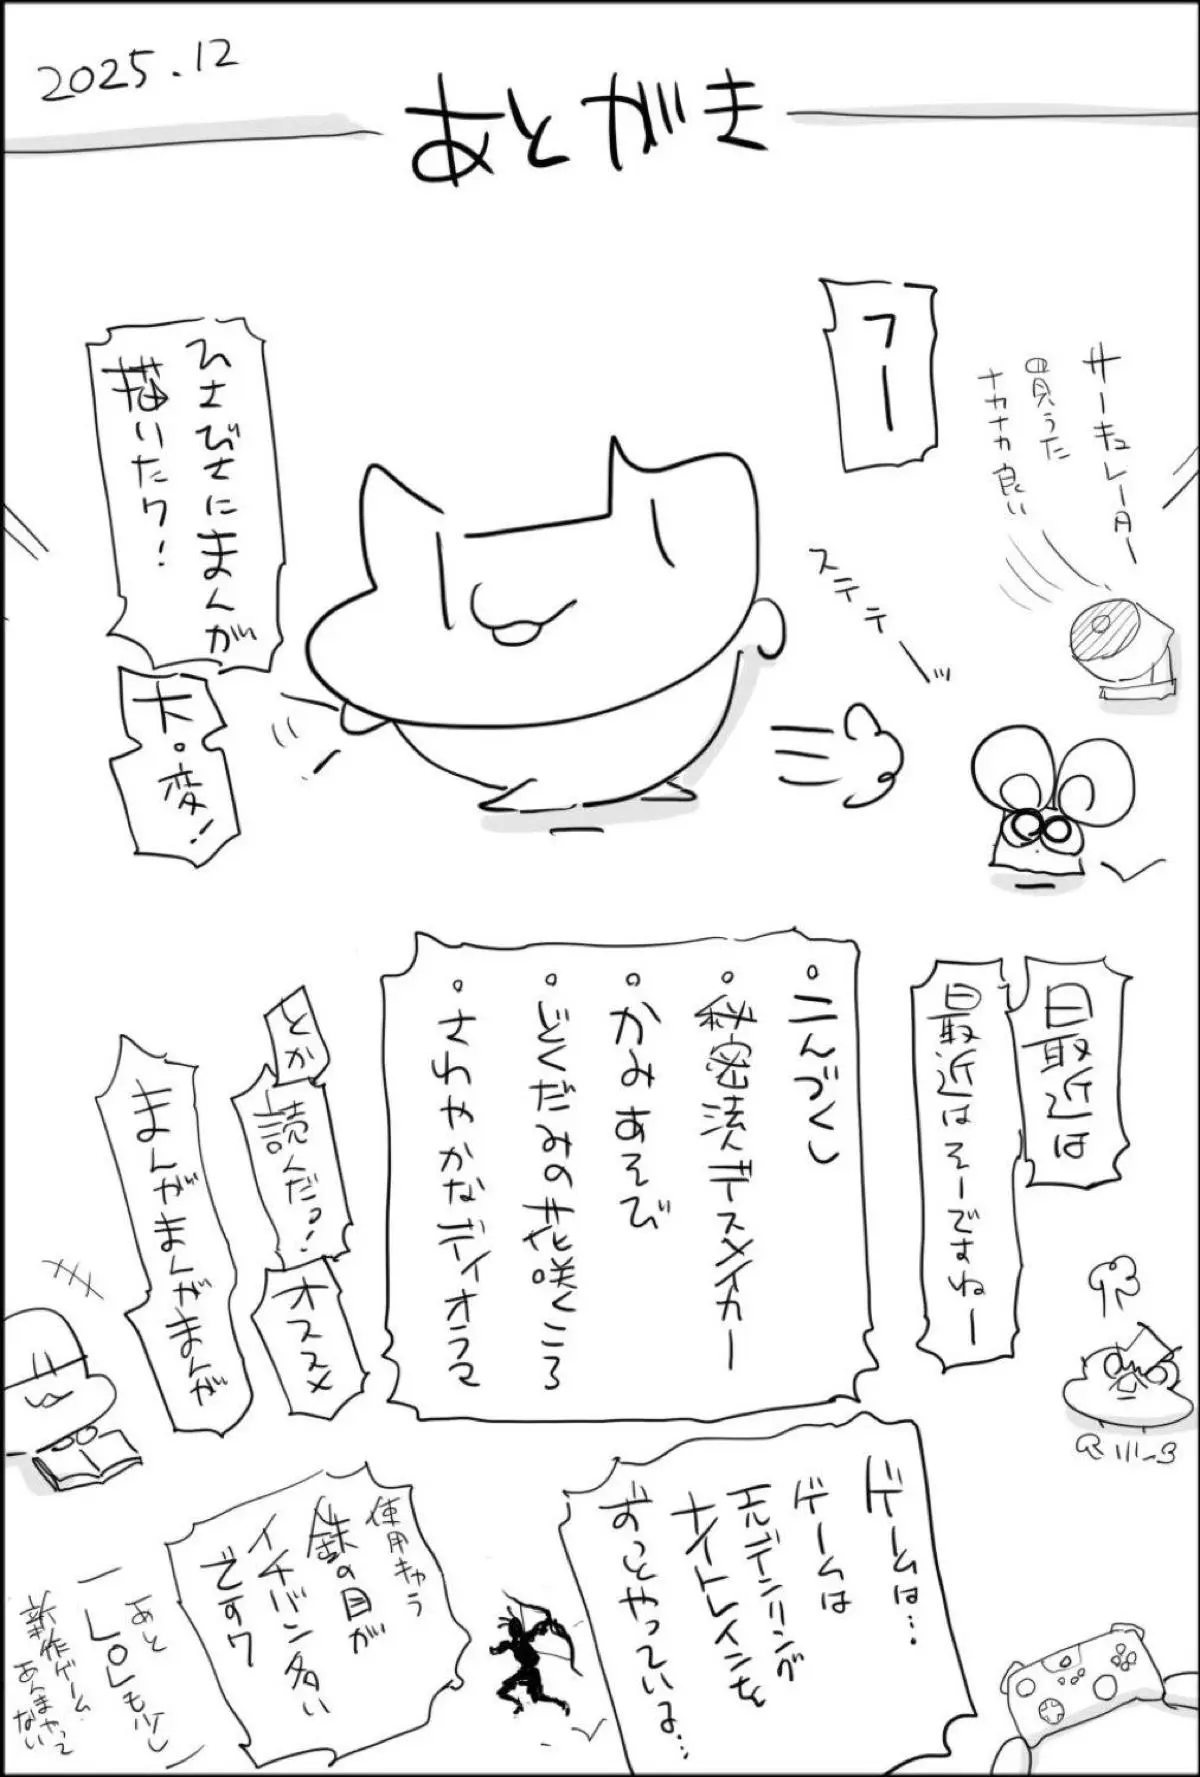 2025.12
あとがき
サーキュレーター
買うた
ナカナカ良い
フー
ステテーッ
ひさびさにまんが
描いたワ!
大・変!
最近は
最近はそーですねー
・こんづくし
・秘密法人デスメイカー
・かみあそび
・どくだみの花咲くころ
・さわやかなディオラマ
とか
読んだっ!
オススメ
まんがまんがまんが
ゲームは…
ゲームは
元デンリングが
ナイトレインを
ずっとやっているよ…
使用キャラ
鉄の目が
イチバン多い
ですワ
あと
LOLも少し
新作ゲーム
あんまやって
ない